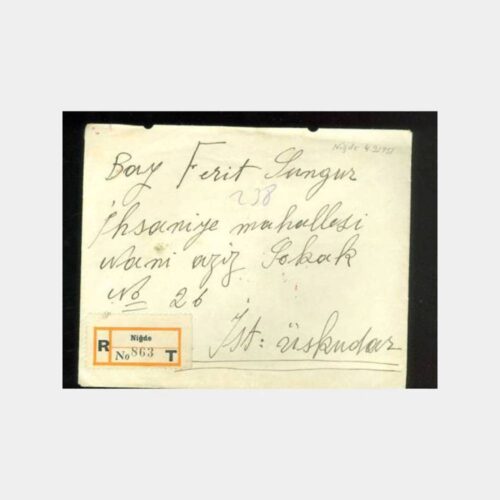 Niğde
Bay Ferit Sungur
238
İhsaniye mahallesi
Nani aziz Sokak
No 26
İst: üsküdar
Niğde
R No 863 T